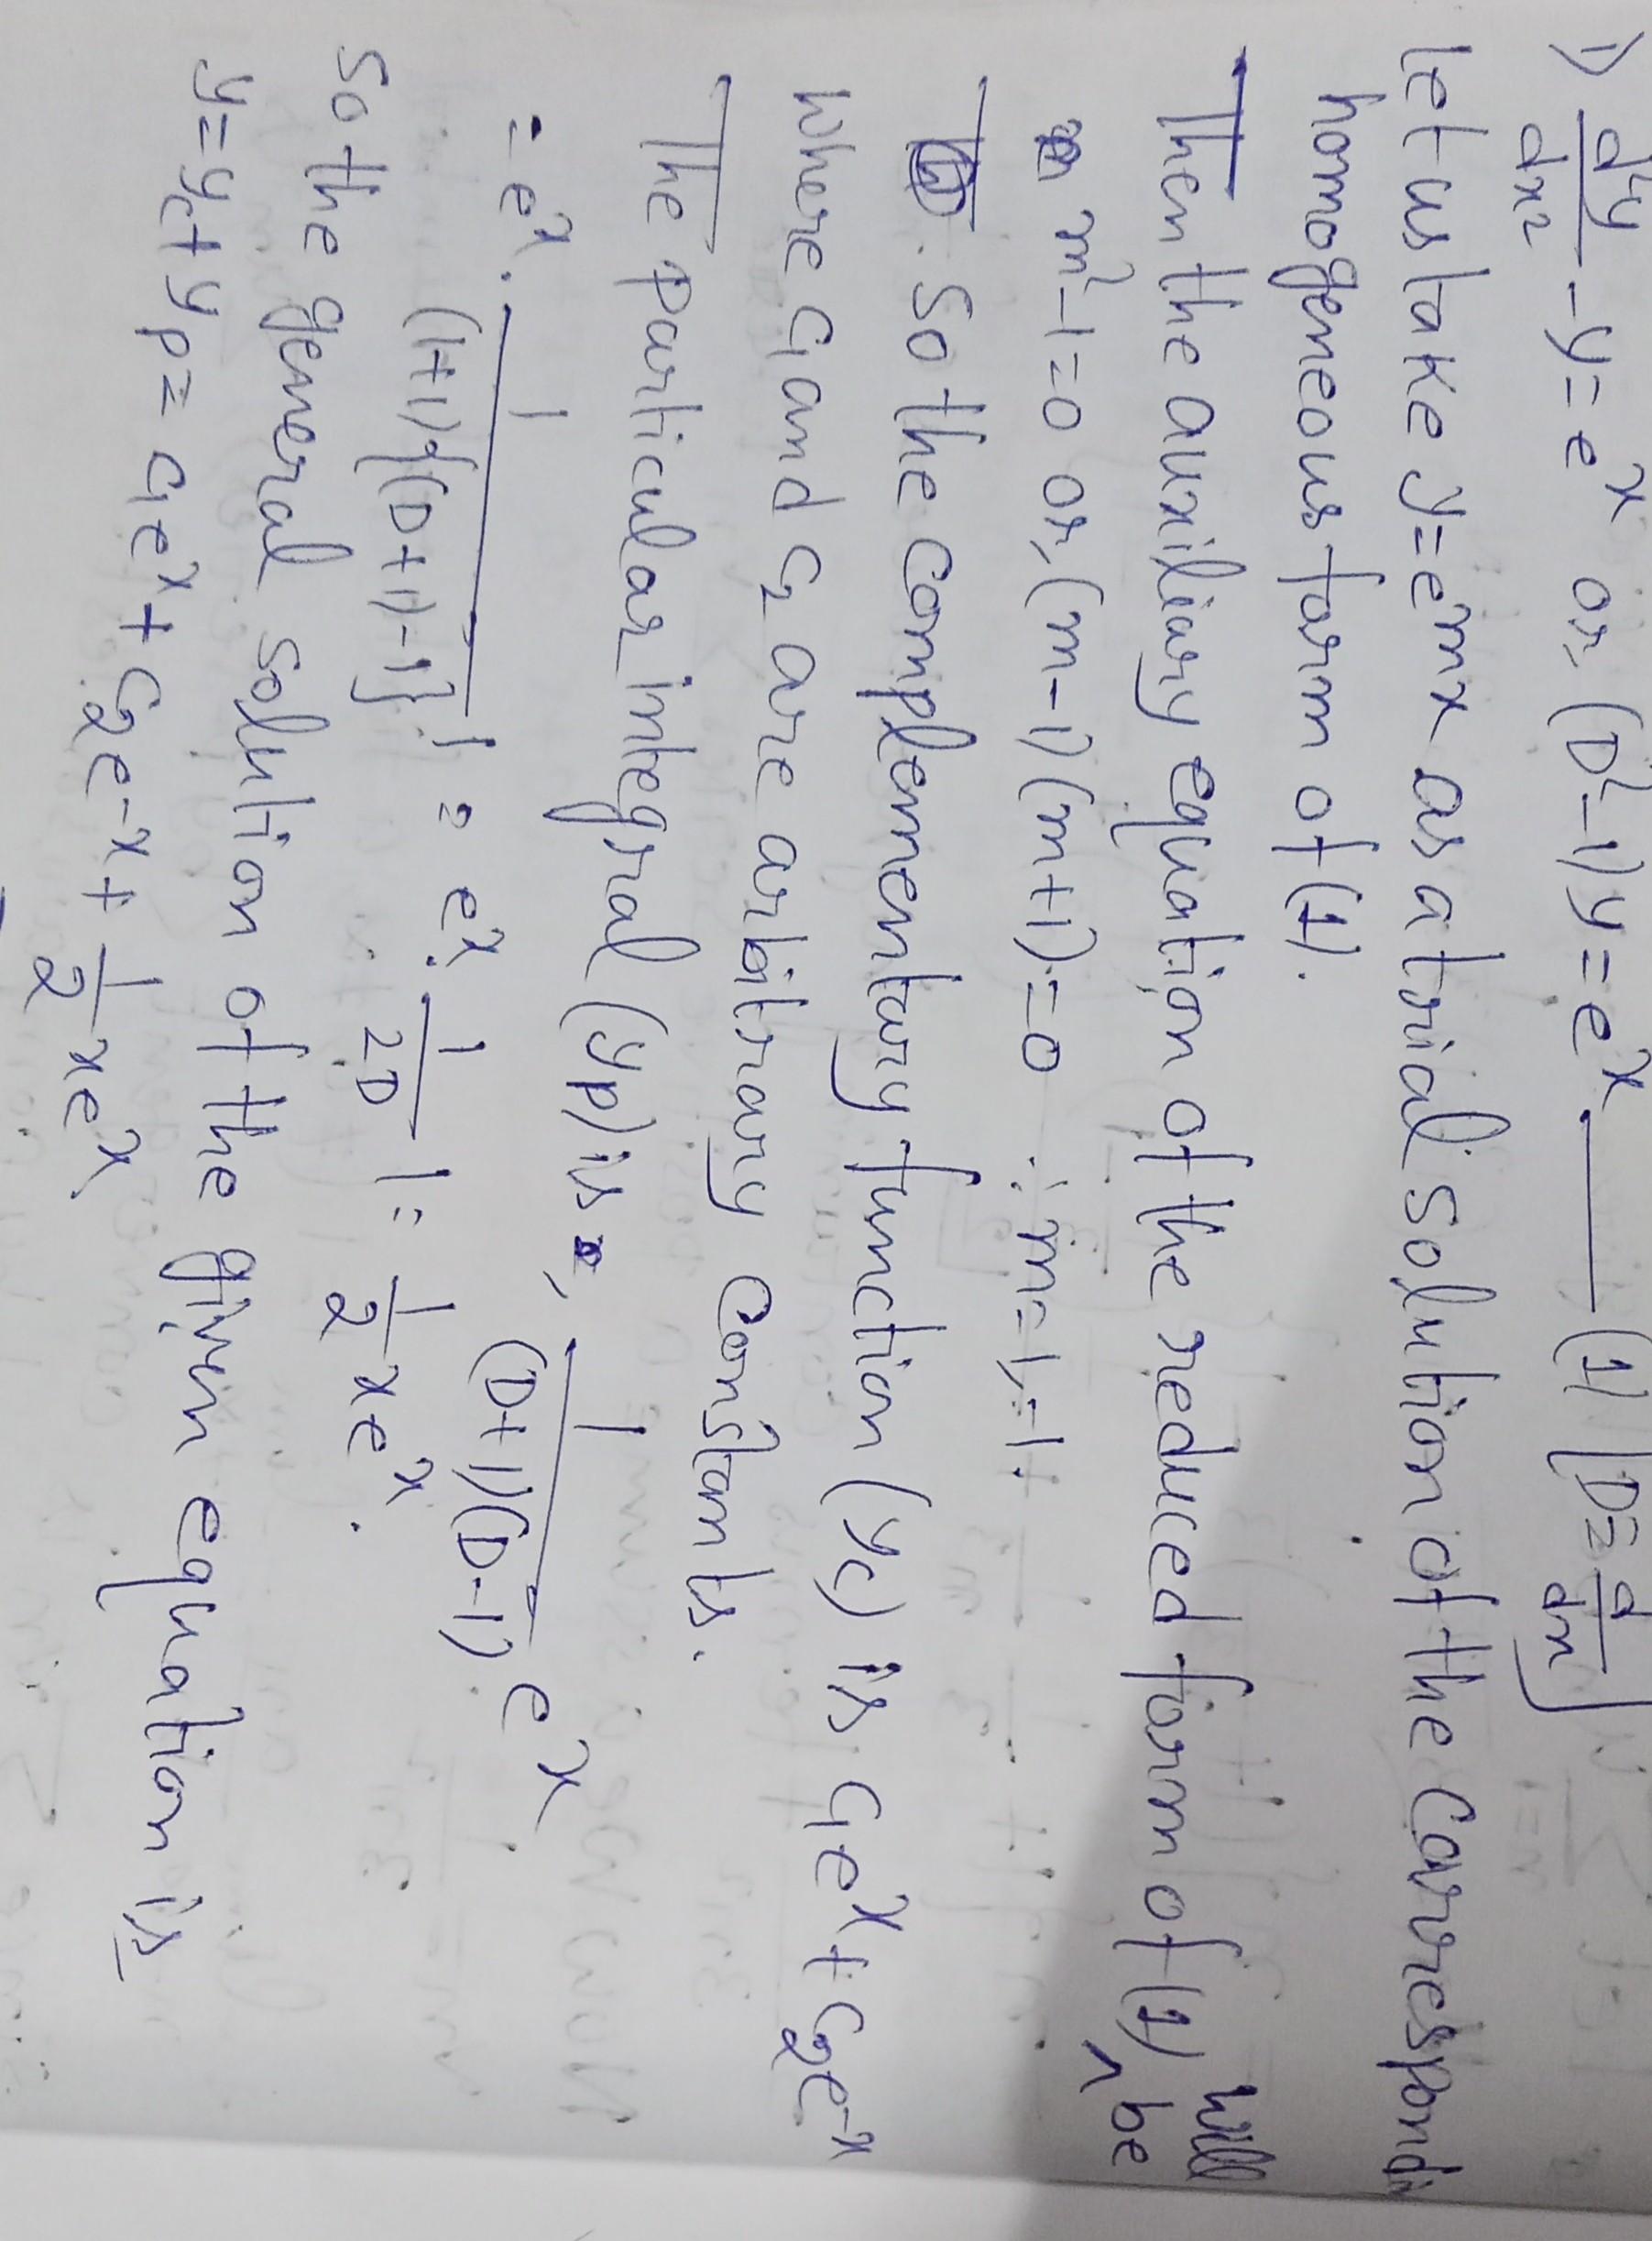 1) d²y/dx² - y = eˣ or, (D²-1)y = eˣ —— (1) [D ≡ d/dx]
let us take y = eᵐˣ as a trial solution of the correspondin
homogeneous form of (1).
Then the auxiliary equation of the reduced form of (1) will be
m²-1=0 or, (m-1)(m+1)=0 ∴ m=1,-1.
So the complementary function (yc) is c₁eˣ + c₂e⁻ˣ
where c₁ and c₂ are arbitrary constants.
The particular integral (yp) is, 1/(D+1)(D-1) eˣ
= eˣ. 1/(1+1){(D+1)-1} 1 = eˣ. 1/2D 1 = 1/2 xeˣ.
So the general solution of the given equation is
y = yc + yp = c₁eˣ + c₂e⁻ˣ + 1/2 xeˣ.